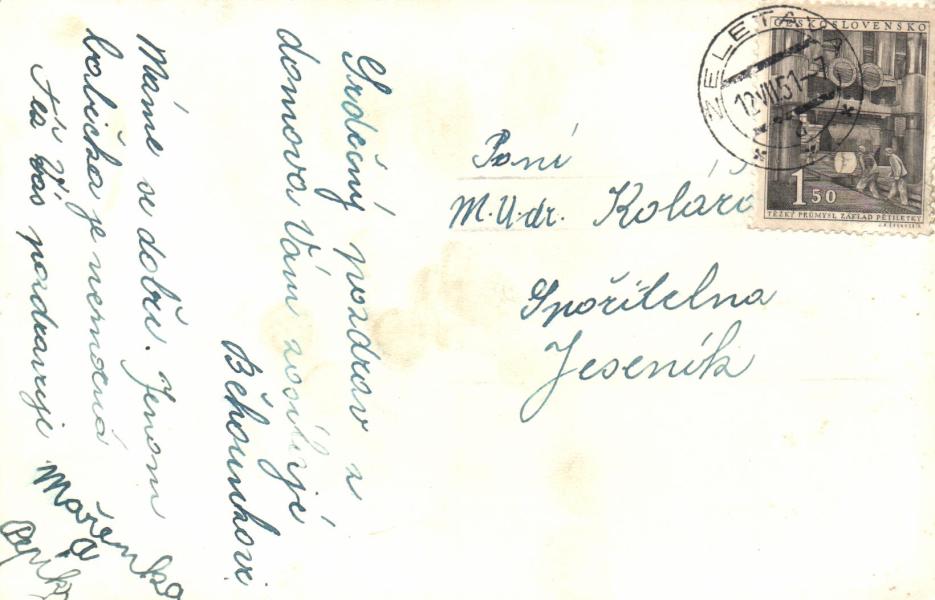 Srdečný pozdrav z
domova Vám zasílají
Běhounkovi.
Máme se dobře. Jenom
babička je nemocná
Též Vás pozdravuje
Mařenka
a
Pepík
Paní
M.U.dr. Kolářo
Spořitelna
Jeseník
ŽELETAVA
12.VII.51-7
ČESKOSLOVENSKO
1 50
TĚŽKÝ PRŮMYSL ZÁKLAD PĚTILETKY